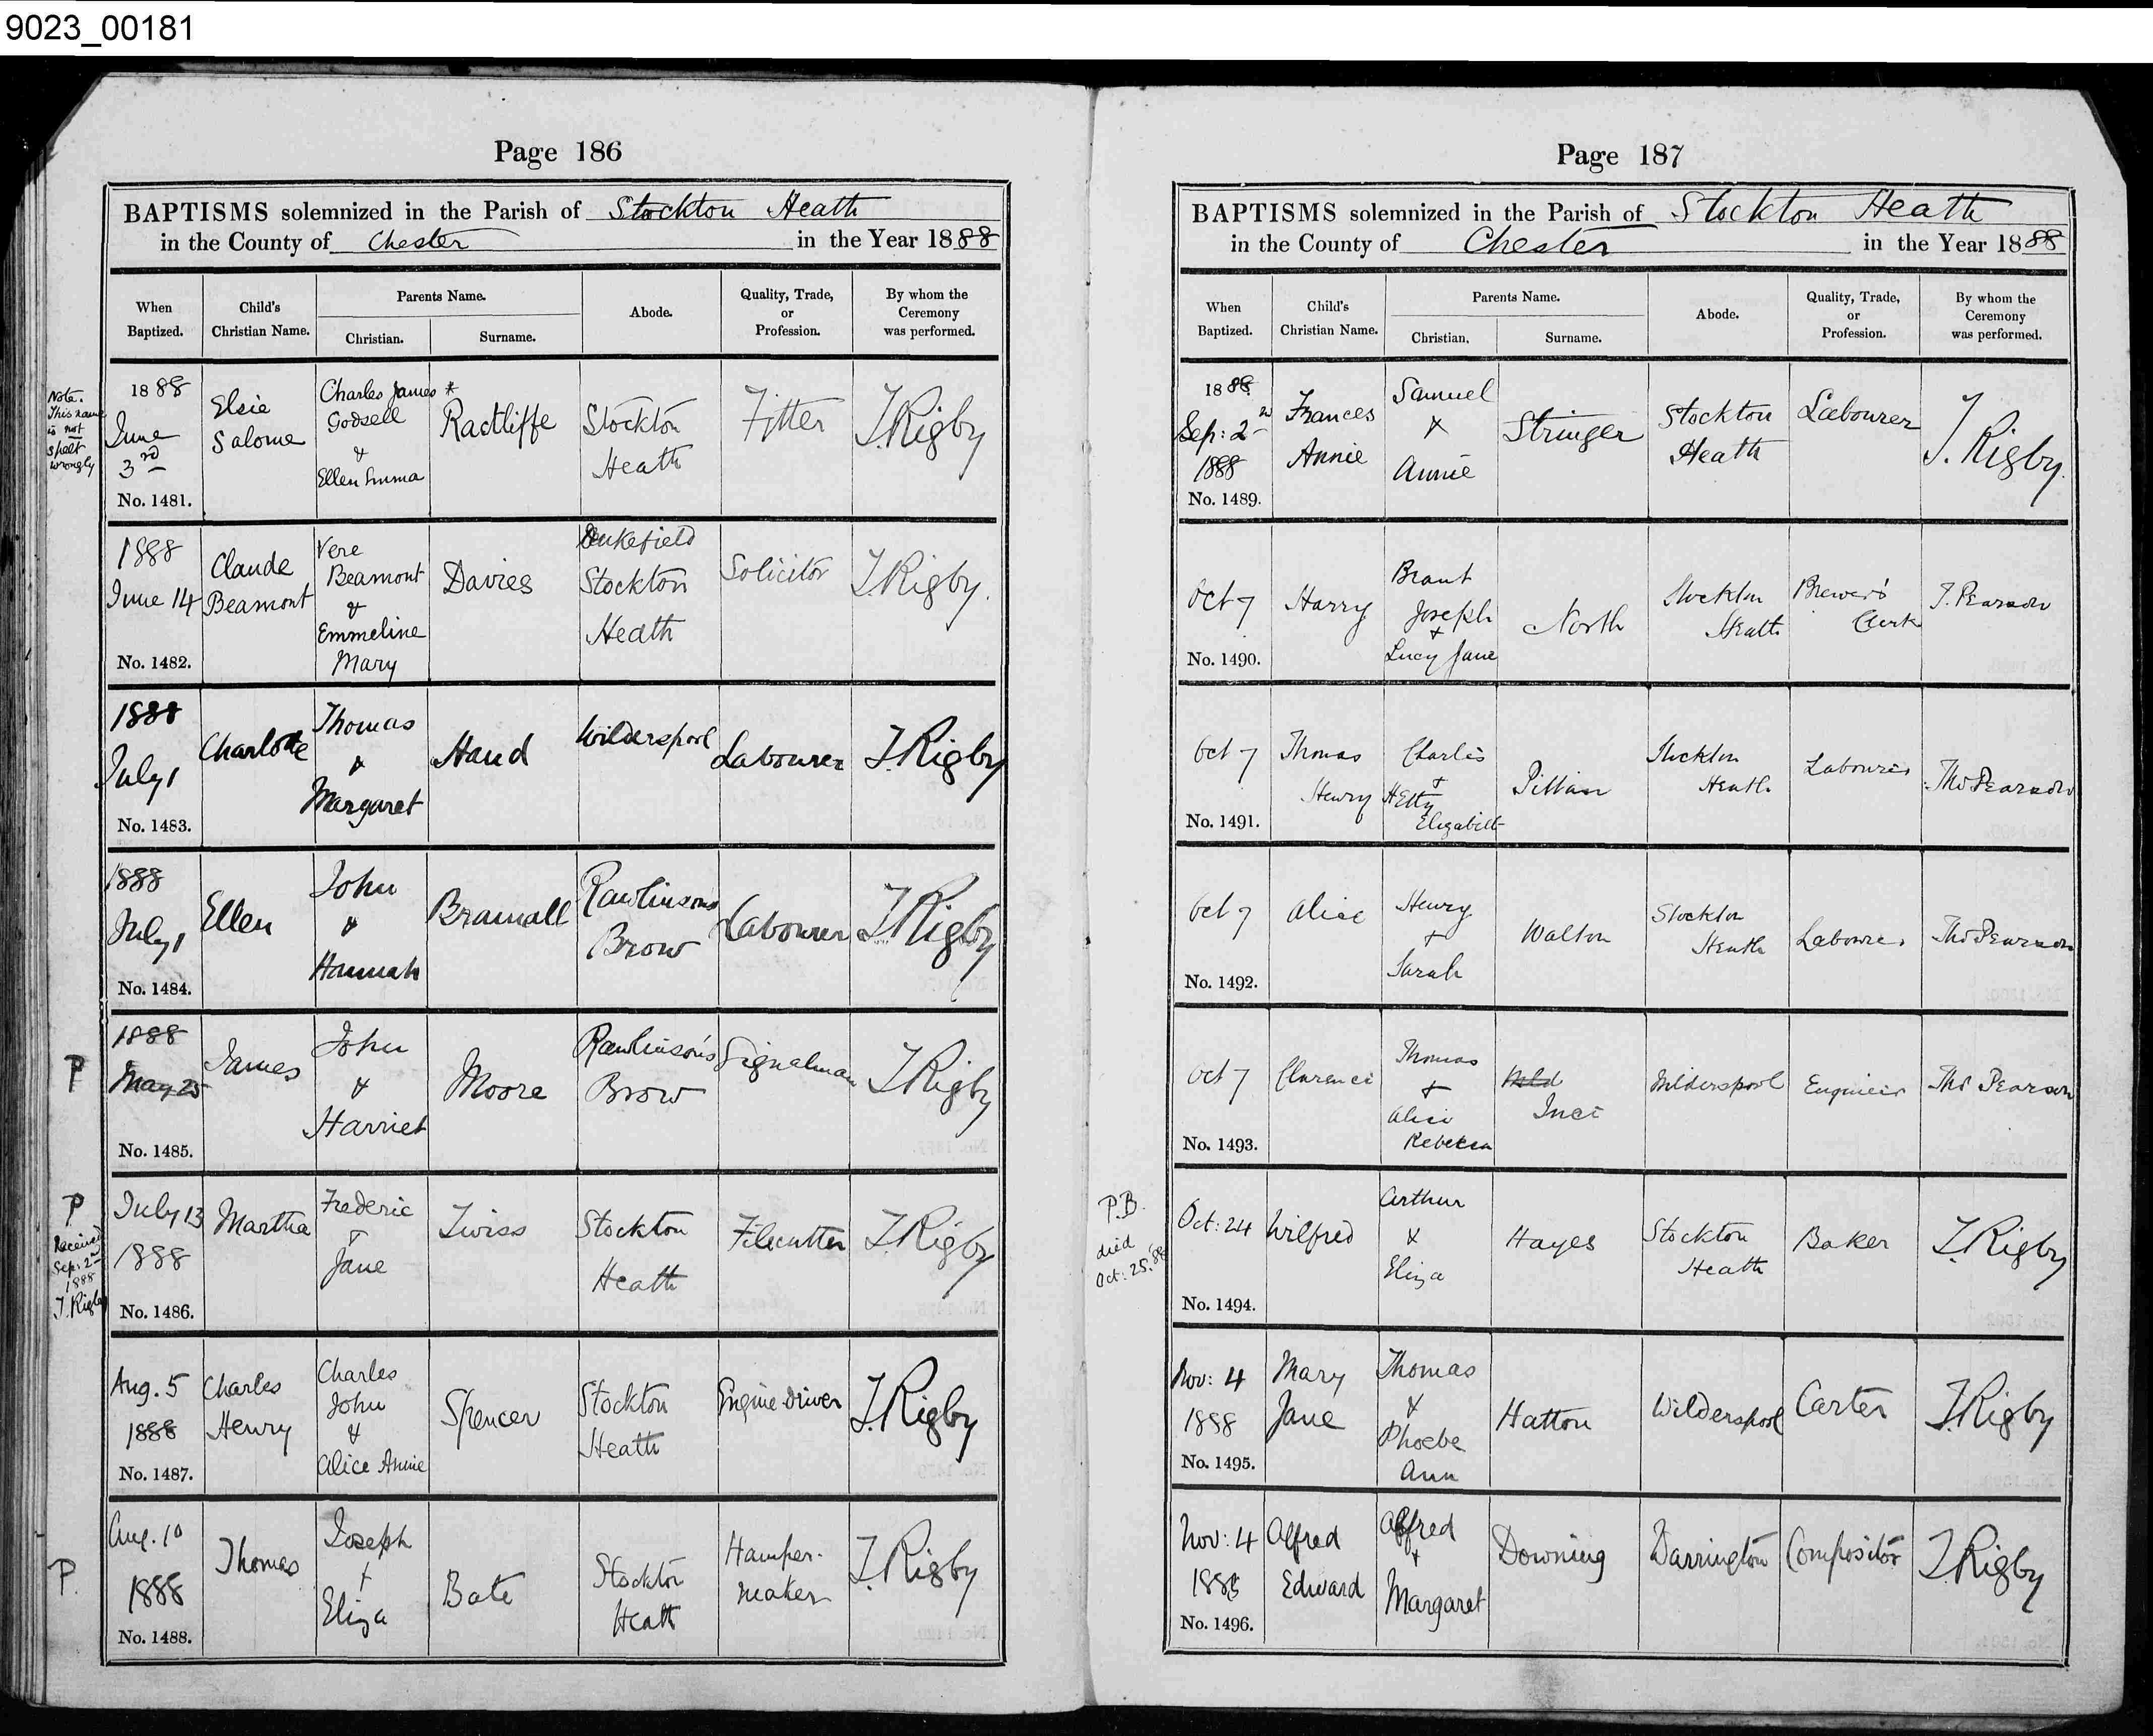 9023_00181
Page 186
BAPTISMS solemnized in the Parish of Stockton Heath
in the County of Chester in the Year 1888
When Baptized.
Child's Christian Name.
Parents Name.
Christian.
Surname.
Abode.
Quality, Trade, or Profession.
By whom the Ceremony was performed.
Note.
This name
is not
spelt
wrongly
1888
June
3rd
No. 1481.
Elsie
Salome
Charles James
Godsell
&
Ellen Emma
*
Ractliffe
Stockton
Heath
Fitter
T. Rigby
1888
June 14
No. 1482.
Claude
Beamont
Vere
Beamont
&
Emmeline
Mary
Davies
Stockton
Heath
Solicitor
T. Rigby.
1888
July 1
No. 1483.
Charlotte
Thomas
&
Margaret
Hand
Wilderspool
Labourer
T. Rigby
1888
July 1
No. 1484.
Ellen
John
&
Hannah
Bramall
Rawlinson's
Brow
Labourer
T. Rigby
P
1888
May 25
No. 1485.
James
John
&
Harriet
Moore
Rawlinson's
Brow
Signalman
T. Rigby
P
Received
Sep: 2nd
1888
T. Rigby
July 13
1888
No. 1486.
Martha
Frederic
&
Jane
Twiss
Stockton
Heath
Filecutter
T. Rigby
Aug. 5
1888
No. 1487.
Charles
Henry
Charles
John
&
Alice Annie
Spencer
Stockton
Heath
Engine Driver
T. Rigby
P.
Aug. 10
1888
No. 1488.
Thomas
Joseph
+
Eliza
Bate
Stockton
Heath
Hamper-
maker
T. Rigby
Page 187
BAPTISMS solemnized in the Parish of Stockton Heath
in the County of Chester in the Year 1888
When Baptized.
Child's Christian Name.
Parents Name.
Christian.
Surname.
Abode.
Quality, Trade, or Profession.
By whom the Ceremony was performed.
1888
Sep: 2nd
1888
No. 1489.
Frances
Annie
Samuel
&
Annie
Stringer
Stockton
Heath
Labourer
T. Rigby.
Oct 7
No. 1490.
Harry
Joseph
+
Lucy Jane
North
Stockton
Heath
Brewer's
Clerk
T. Pearson
Oct 7
No. 1491.
Thomas
Henry
Charles
+
Hetty
Elizabeth
Stockton
Heath
Labourer
Thos Pearson
Oct 7
No. 1492.
Alice
Henry
+
Sarah
Walton
Stockton
Heath
Labourer
Thos Pearson
Oct 7
No. 1493.
Clarence
Thomas
+
Alice
Rebecca
Ince
Wilderspool
Engineer
Thos Pearson
P.B.
died
Oct: 25. '88
Oct: 24
No. 1494.
Wilfred
Arthur
&
Eliza
Hayes
Stockton
Heath
Baker
T. Rigby
Nov: 4
1888
No. 1495.
Mary
Jane
Thomas
&
Phoebe
Ann
Hatton
Wilderspool
Carter
T. Rigby
Nov: 4
1888
No. 1496.
Alfred
Edward
Alfred
+
Margaret
Downing
Warrington
Compositor
T. Rigby